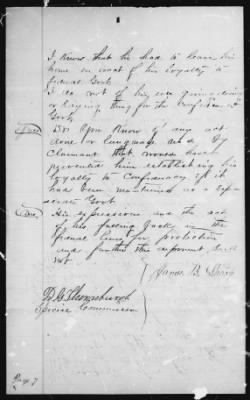 I Know that he had to leave his
home on acct of his loyalty to
Federal Govt.
I do not of his ever giving doing
or saying thing for the Confederate
Govt.
Do you know of any act
done or language used by
Claimant that would have
prevented him establishing his
loyalty to Confederacy if it
had been maintained as a sep-
arate Govt.
His expressions and the act
of his falling back in the
Federal lines for protection
and further this deponent saith
not.
James B.
Special Commissioner
Page 7